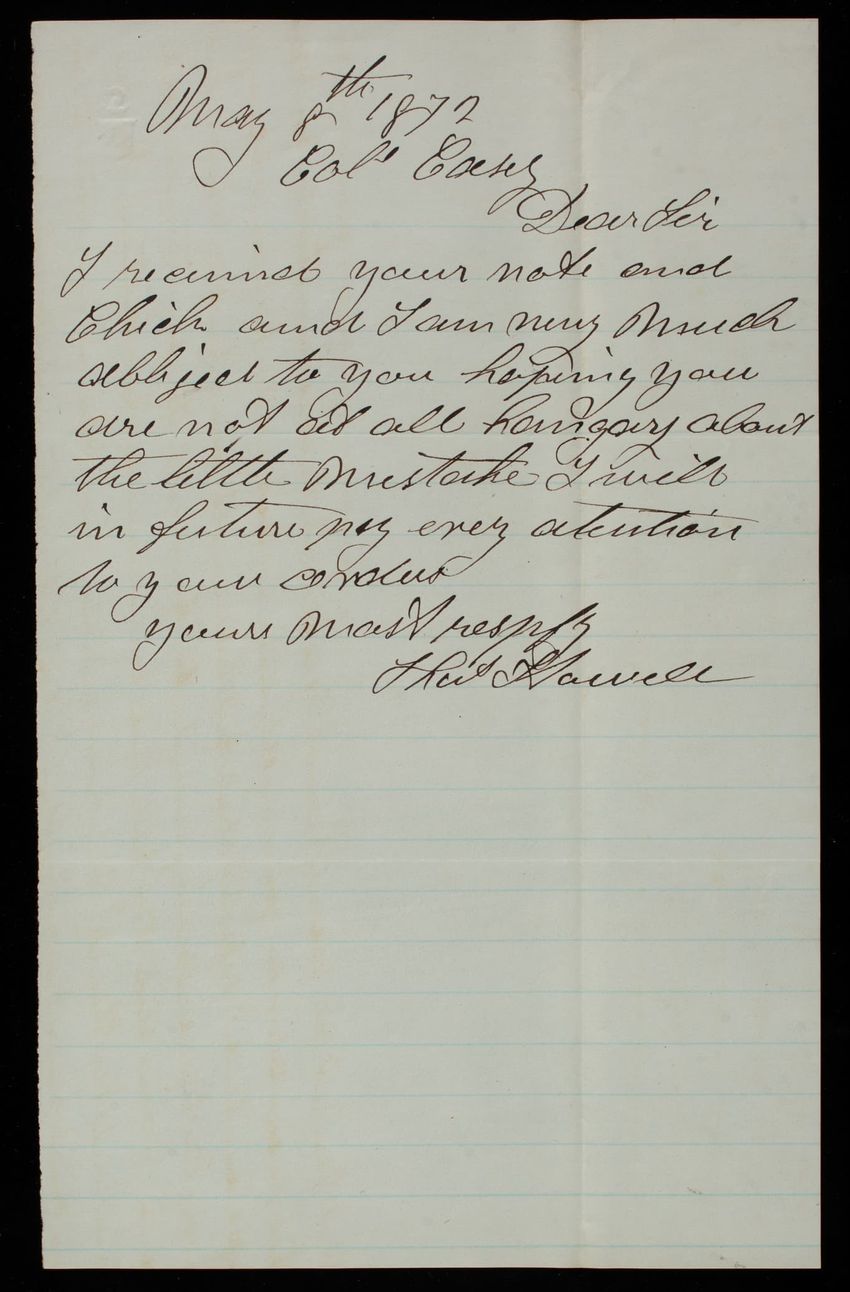 May 8th 1872
Col. Casey
Dear Sir
I received your note and
Chick and I am very Much
obbliged to you hoping you
are not at all hangary about
the little Mistake I will
in future pay every atention
to your orders
yours Most respfy
Howell